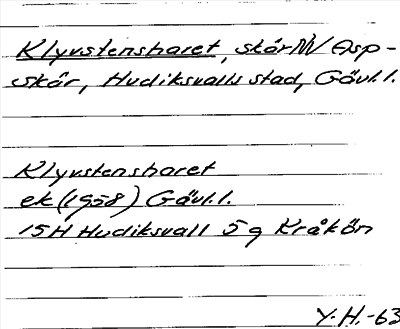 Klyvstensharet, skär NV Asp-
skär, Hudiksvalls stad, Gävl.l.
Klyvstensharet
ek (1958) Gävl.l.
15H Hudiksvall 5g Kråkön
Y.H.-63